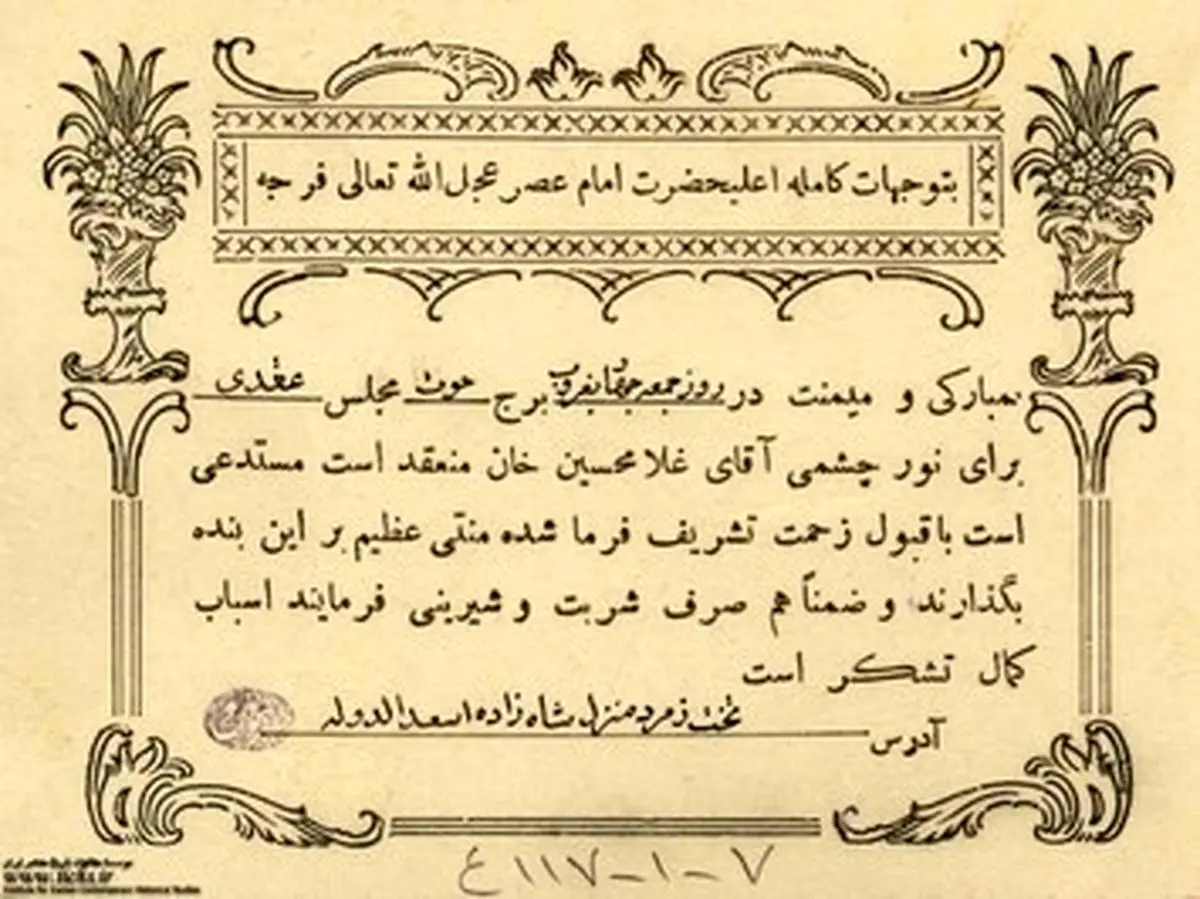 بتوجهات کامله اعلیحضرت امام عصر عجل الله تعالی فرجه
بمبارکی و میمنت در روز جمعه برج حوت مجلس عقدی
برای نور چشمی آقای غلامحسین خان منعقد است مستدعی
است با قبول زحمت تشریف فرما شده منتی عظیم بر این بنده
بگذارند و ضمناً هم صرف شربت و شیرینی فرمایند اسباب
کمال تشکر است
آدرس تخت زمرد منزل شاه زاده اسعد الدوله
۷-۱-۱۱۷ع